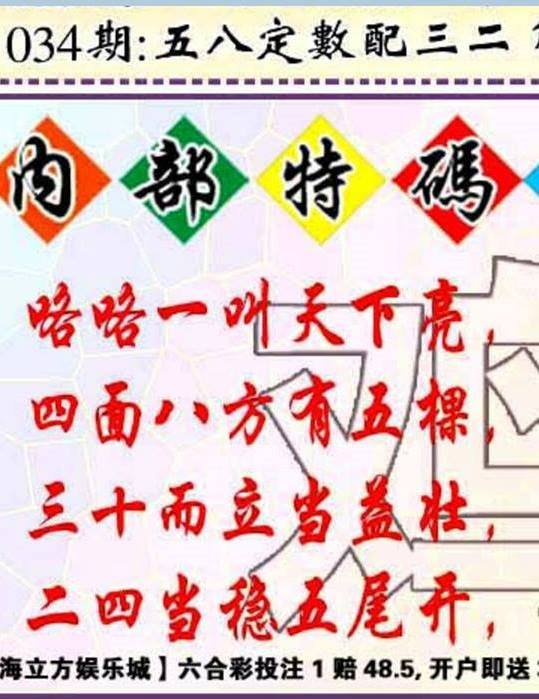 034期:五八定數配三二
内部特碼
咯咯一叫天下亮,
四面八方有五棵,
三十而立当益壮,
二四当稳五尾开,
海立方娱乐城】六合彩投注1赔48.5,开户即送